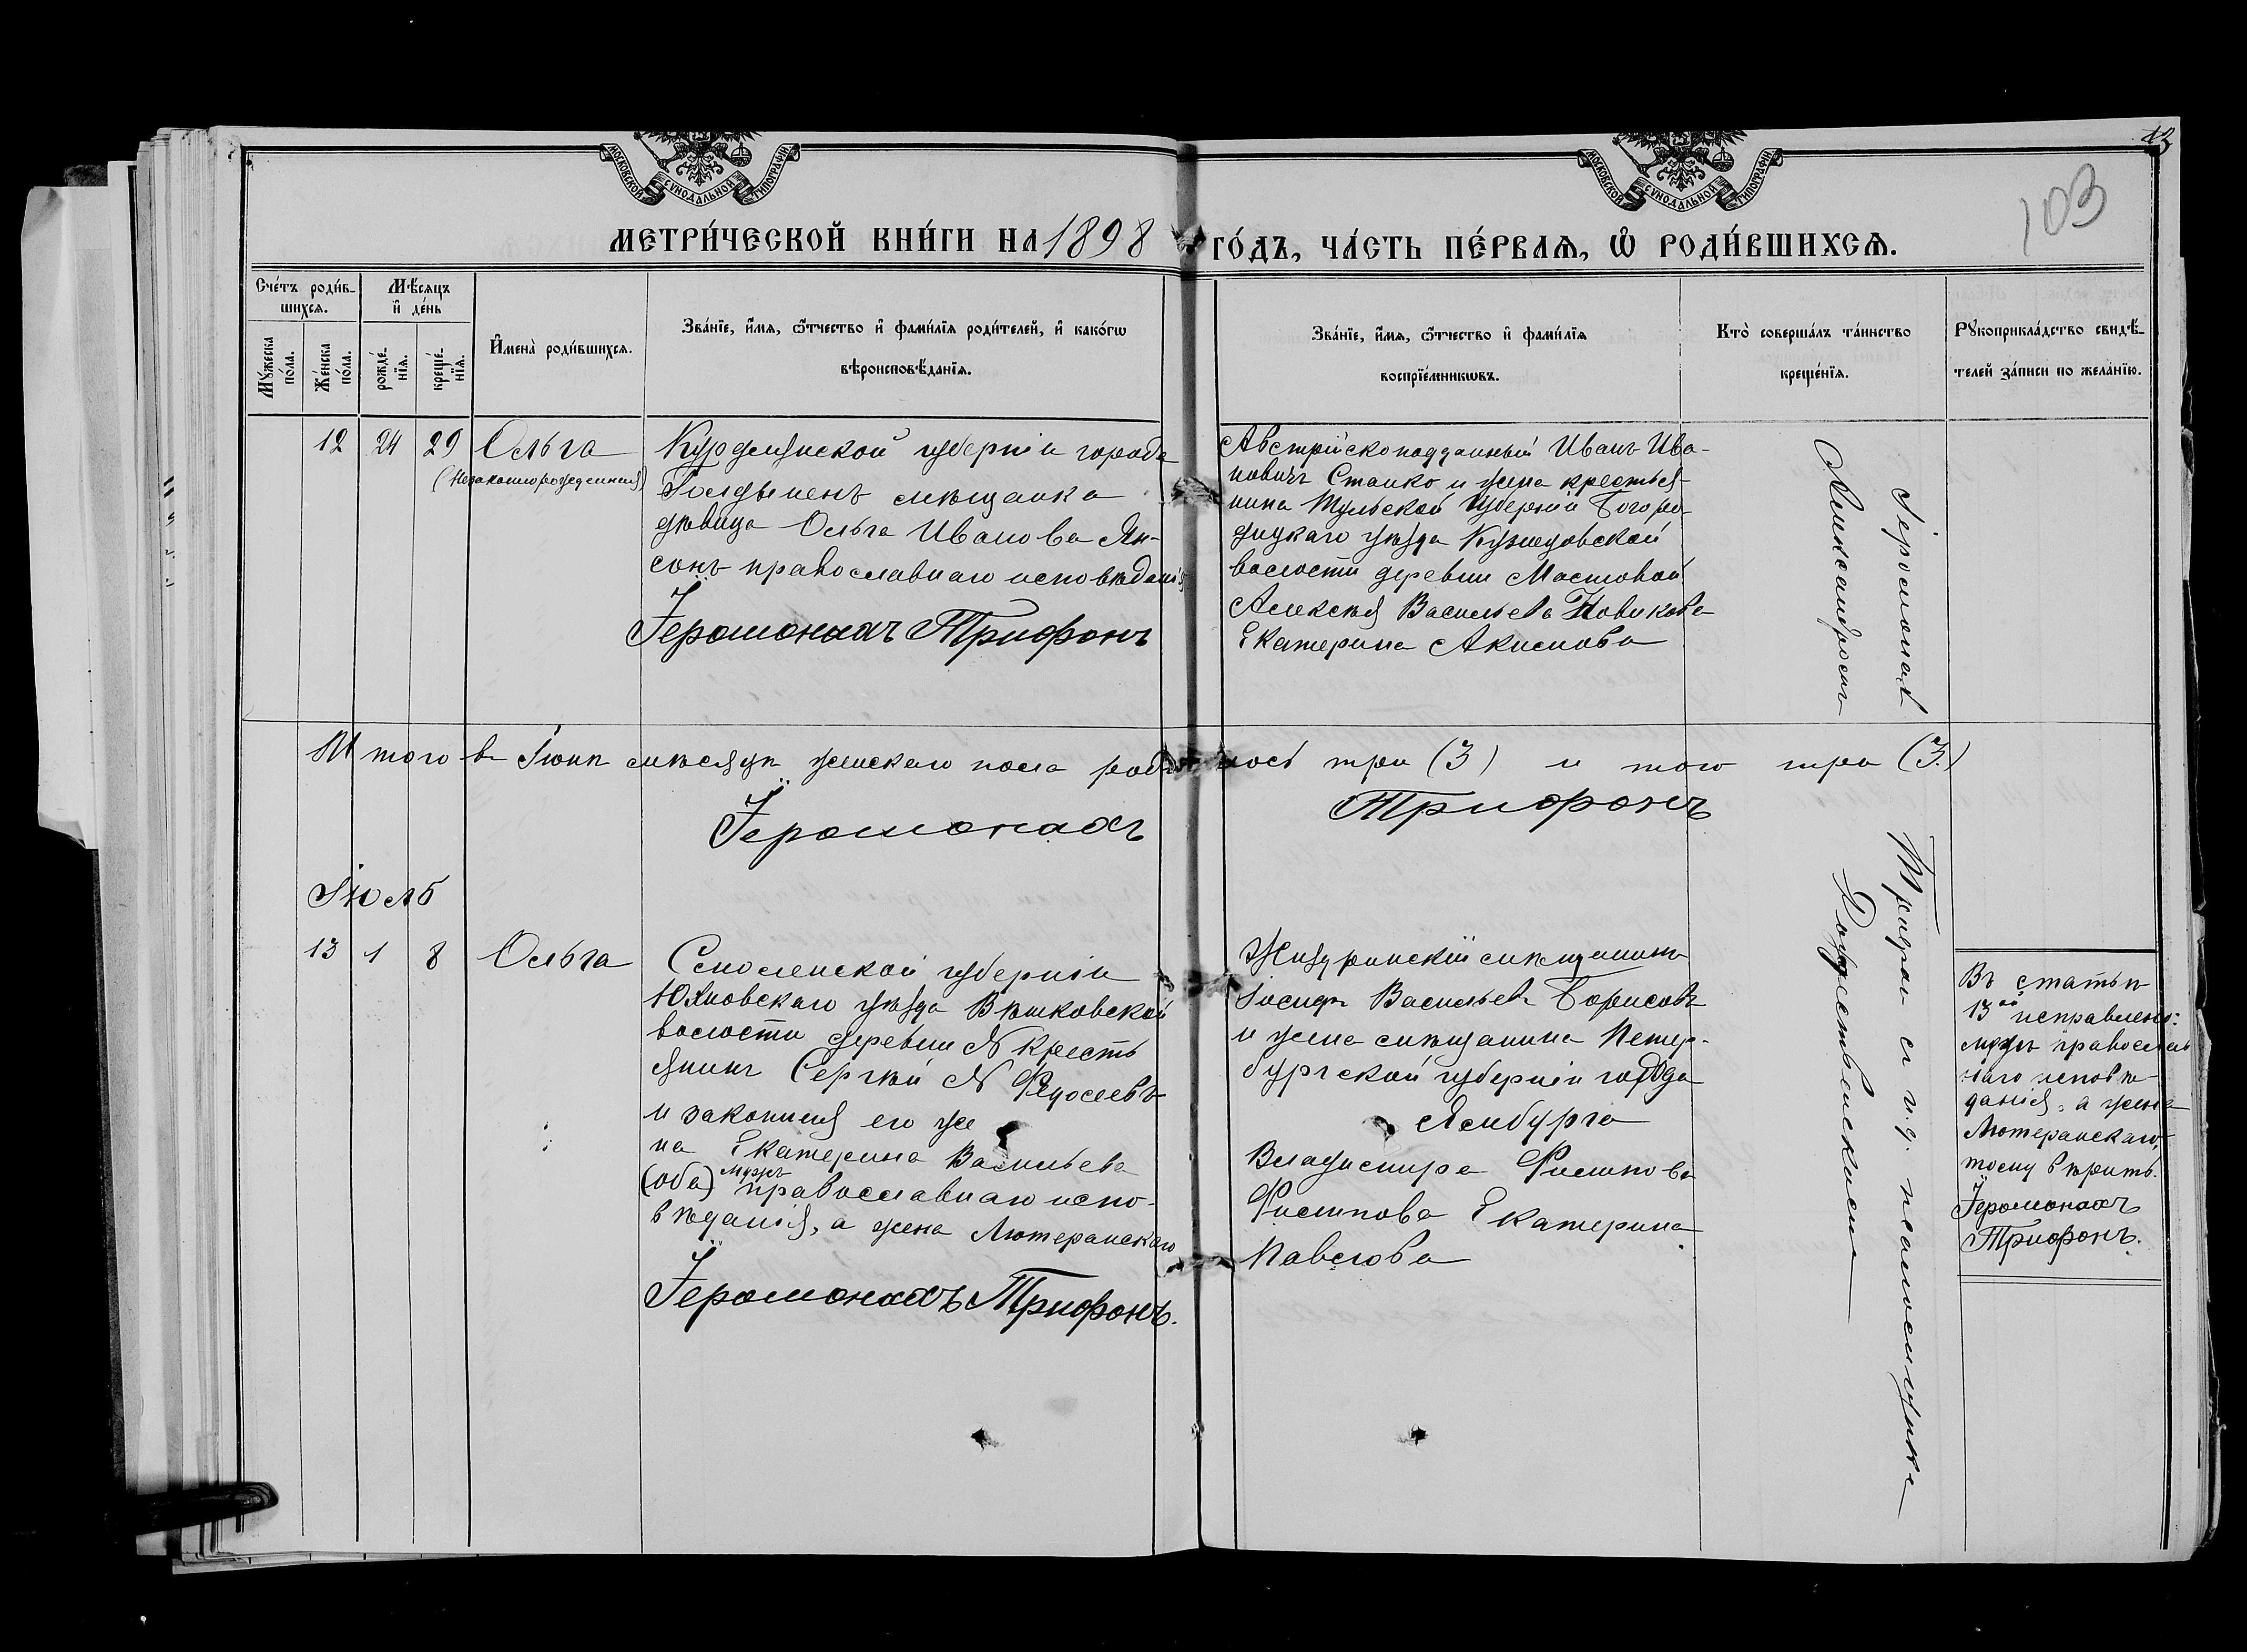 МОСКОВСКОЙ СѴНОДАЛЬНОЙ ТИПОГРАФІИ
МОСКОВСКОЙ СѴНОДАЛЬНОЙ ТИПОГРАФІИ
103
МЕТРИ́ЧЕСКОЙ КНИ́ГИ НА 1898 ГО́ДЪ, ЧА́СТЬ ПЕ́РВАѦ, Ѡ҆ РОДИ́ВШИХСѦ.
Сче́тъ роди́в-
шихсѧ.
Мꙋжеска по́ла.
Же́нска по́ла.
Мѣ́сѧцъ
и҆ де́нь
рожде́-
нїѧ.
креще́-
нїѧ.
И҆мена̀ роди́вшихсѧ.
Зва́нїе, и҆́мѧ, ѻ҆́тчество и҆ фами́лїѧ роди́телей, и҆ како́гѡ
вѣроисповѣ́данїѧ.
Зва́нїе, и҆́мѧ, ѻ҆́тчество и҆ фами́лїѧ
воспрїе́мникѡвъ.
Кто̀ соверша́лъ та́инство
креще́нїѧ.
Рꙋкоприкла́дство свидѣ́-
телей за́писи по жела́нїю.
12 24 29 Ольга
(Незаконнорожденная)
Курляндской губерніи города
мѣщанка
дѣвица Ольга Иванова Ян-
сонъ православнаго исповѣданія
Іеромонахъ Трифонъ
Австрійскоподданный Иванъ Ива-
новичъ Станко и жена крестья-
нина Тульской Губерніи Богоро-
дицкаго уѣзда Кузнецовской
волости деревни Мостовой
Алексѣя Васильева Новикова
Екатерина Акимова
Іеромонахъ
Трифонъ съ и.д. псаломщика
Александромъ
Рождественскимъ
Итого въ Іюнѣ мѣсяцѣ женскаго пола родилось три (3) итого три (3.)
Іеромонахъ Трифонъ
Іюль
13 1 8 Ольга
Смоленской губерніи
Юхновскаго уѣзда Вѣшковской
волости деревни N кресть
янинъ Сергѣй N Федосеевъ
и законная его же
на Екатерина Васильева
(оба) мужъ православнаго испо-
вѣданія, а жена Лютеранскаго
Іеромонахъ Трифонъ.
Жиздринскій мѣщанинъ
Іосифъ Васильевъ Борисовъ
и жена мѣщанина Петер-
бургской губерніи города
Ямбурга
Владимира Филиппова
Филиппова Екатерина
Павлова
Въ статьѣ
13ой исправлено:
мужъ православ
наго исповѣ-
данія, а жена
Лютеранскаго,
тому вѣрить.
Іеромонахъ
Трифонъ.